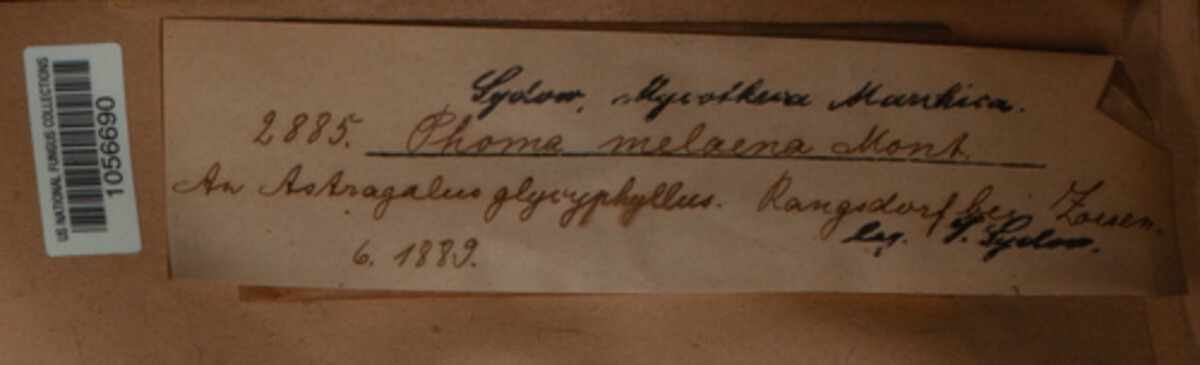 US NATIONAL FUNGUS COLLECTIONS
1056690
Sydow, Mycotheca Marchica.
2885. Phoma melaena Mont.
An Astragalus glycyphyllus. Rangsdorf bei Zossen.
leg. P. Sydow.
6. 1889.